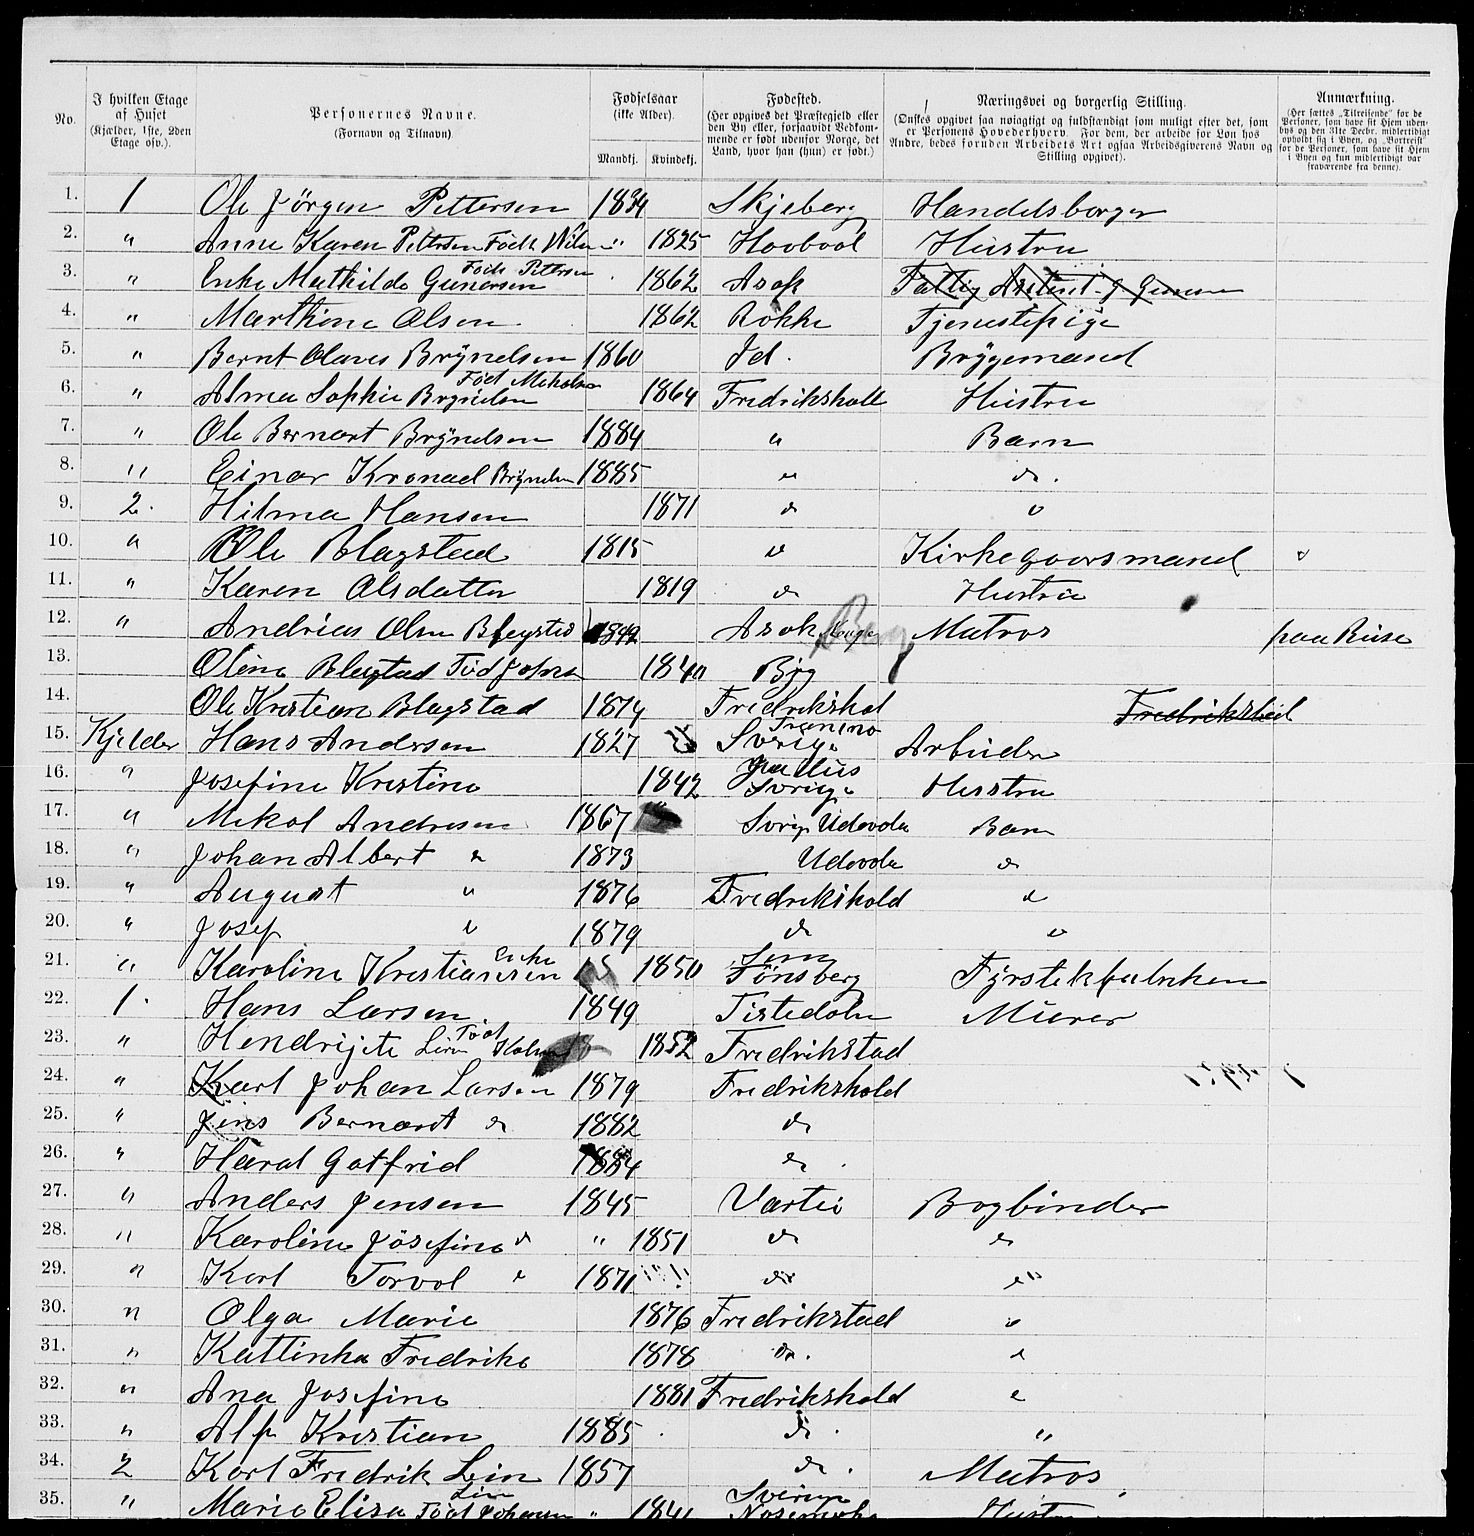 No.
I hvilken Etage af Huset (Kjælder, 1ste, 2den Etage osv.).
Personernes Navne. (Fornavn og Tilnavn)
Fødselsaar (ikke Alder).
Mandkj. Kvindekj.
Fødested. (Her opgives det Præstegjeld eller den By eller, forsaavidt Vedkommende er født udenfor Norge, det Land, hvor han (hun) er født.)
Næringsvei og borgerlig Stilling. (Ønskes opgivet saa nøiagtigt og fuldstændigt som muligt efter det, som er Personens Hovederhverv. For dem, der arbeide for Løn hos Andre, bedes foruden Arbeidets Art ogsaa Arbeidsgiverens Navn og Stilling opgivet).
Anmærkning. (Her sættes „Tilreisende“ for de Personer, som have sit Hjem udenbys og den 31te Decbr. midlertidigt opholdt sig i Byen, og „Bortreist“ for de Personer, som have sit Hjem i Byen og kun midlertidigt var fraværende fra denne).
1. 1 Ole Jörgen Pettersen 1834 Skjeberg Handelsborger
2. " Anne Karen Petersen Födt 1825 Hovbøl Hustru
3. " Enke Mathilde Gunersen Föds Pettersen 1862 Asak
4. " Marthine Olsen 1862 Rökke Tjenestepige
5. " Bernt Olaves Brynelsen 1860 Id. Bryggemand
6. " Alma Sophie Brynelsen Föd 1864 Fredrikshall Hustru
7. " Ole Bernart Brynelsen 1884 " Barn
8. " Einar Kronael Brynelsen 1885 " do.
9. 2. Hilma Hansen 1871 do "
10. " Ole Blagstad 1815 do Kirkegaarsmand
11. " Karen Olsdatter 1819 do Hustru
12. " Andrias Olsen Blagstad 1842 Asak Berg Matros paa Reise
13. Oline Blagstad Föd 1840
14. Ole Kristian Blagstad 1874 Fredrikshal Fredrikshal
15. Kjelder Hans Andersen 1827 Sverige Arbeider
16. " Josefine Kristine 1842 Sverige Hustru
17. " Mikal Andresen 1867 Sverige Udevda Barn
18. " Johan Albert do 1873 Udevda do
19. " August " 1876 Fredrikshald do
20. " Josef " 1879 do "
21. " Karoline Kristiansen Enke 1850 Sem Tönsberg Fyrstekfabriken
22. 1. Hans Larsen 1849 Tistedalen Murer
23. " Hendrijete Födt 1852 Fredrikstad
24. " Karl Johan Larsen 1879 Fredrikshald
25. " Jens Bernardt do 1882 do
26. " Haral Gotfrid 1884 do.
27. " Anders Jensen 1845 Vartei Bogbinder
28. " Karoline Josefine do " 1851 do do
29. " Karl Torvol " 1871 do "
30. " Olga Marie 1876 Fredrikstad "
31. " Kattinka Fredrike 1878 do. "
32. " Ana Josefine 1881 Fredrikshald "
33. " Alf Kristian 1885 do. "
34. 2 Karl Fredrik Lein 1857 do. Matros
35. " Marie Elisa Födt Johansen " 1841 Sverige Hustru